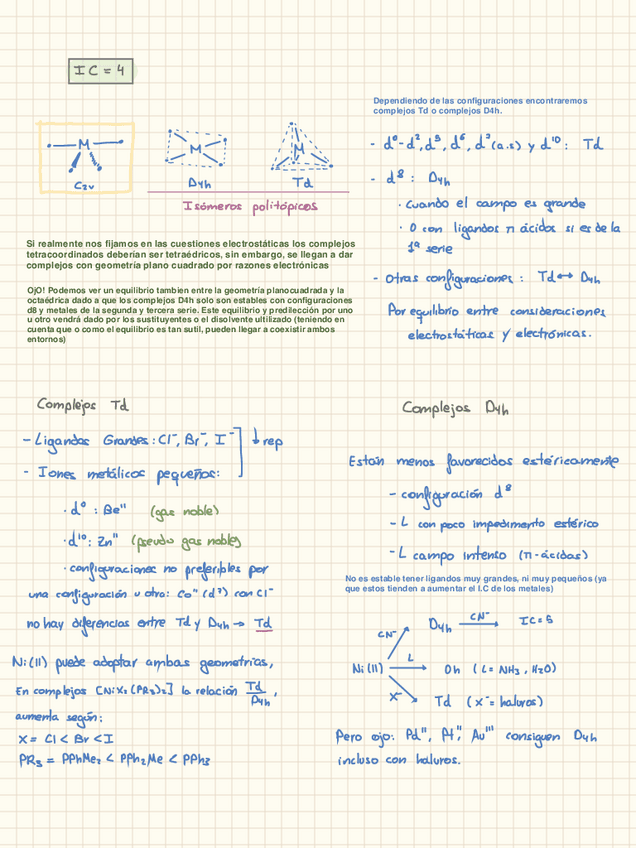 IC = 4
M
C2v
M
D4h
M
Td
Isómeros politópicos
Dependiendo de las configuraciones encontraremos
complejos Td o complejos D4h.
- d⁰-d², d⁵, d⁶, d⁷(a.s) y d¹⁰: Td
- d⁸ : D4h
· Cuando el campo es grande
· O con ligandos π ácidos si es de la
1ª serie
- Otras configuraciones : Td ↔ D4h
Por equilibrio entre consideraciones
electrostáticas y electrónicas.
Si realmente nos fijamos en las cuestiones electrostáticas los complejos
tetracoordinados deberían ser tetaédricos, sin embargo, se llegan a dar
complejos con geometría plano cuadrado por razones electrónicas
OjO! Podemos ver un equilibrio tambien entre la geometría planocuadrada y la
octaédrica dado a que los complejos D4h solo son estables con configuraciones
d8 y metales de la segunda y tercera serie. Este equilibrio y predilección por uno
u otro vendrá dado por los sustituyentes o el disolvente utilizado (teniendo en
cuenta que o como el equilibrio es tan sutil, pueden llegar a coexistir ambos
entornos)
Complejos Td
- Ligandos Grandes: Cl⁻, Br⁻, I⁻ ↓rep
- Iones metálicos pequeños:
· d⁰ : Beᴵᴵ (gas noble)
· d¹⁰: Znᴵᴵ (pseudo gas noble)
· configuraciones no preferibles por
una configuración u otra: Coᴵᴵ (d⁷) con Cl⁻
no hay diferencias entre Td y D4h → Td
Ni(II) puede adoptar ambas geometrías,
En complejos [NiX2(PR3)2] la relación Td/D4h,
aumenta según:
X = Cl < Br < I
PR3 = PPhMe2 < PPh2Me < PPh3
Complejos D4h
Están menos favorecidos estéricamente
- configuración d⁸
- L con poco impedimento estérico
- L campo intenso (π-ácidos)
No es estable tener ligandos muy grandes, ni muy pequeños (ya
que estos tienden a aumentar el I.C de los metales)
CN⁻ D4h CN⁻ → IC=5
Ni(II) L → Oh (L = NH3, H2O)
X⁻ Td (X⁻= haluros)
Pero ojo: Pdᴵᴵ, Ptᴵᴵ, Auᴵᴵᴵ consiguen D4h
incluso con haluros.